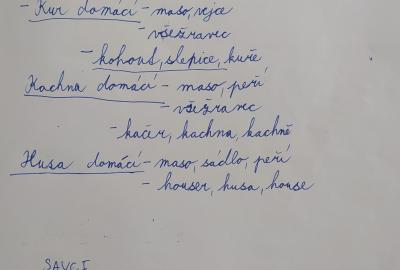 - Kur domácí - maso, vejce
- všežravec
- kohout, slepice, kuře
Kachna domácí - maso, peří
- všežravec
- kačer, kachna, kachně
Husa domácí - maso, sádlo, peří
- houser, husa, house
SAVCI